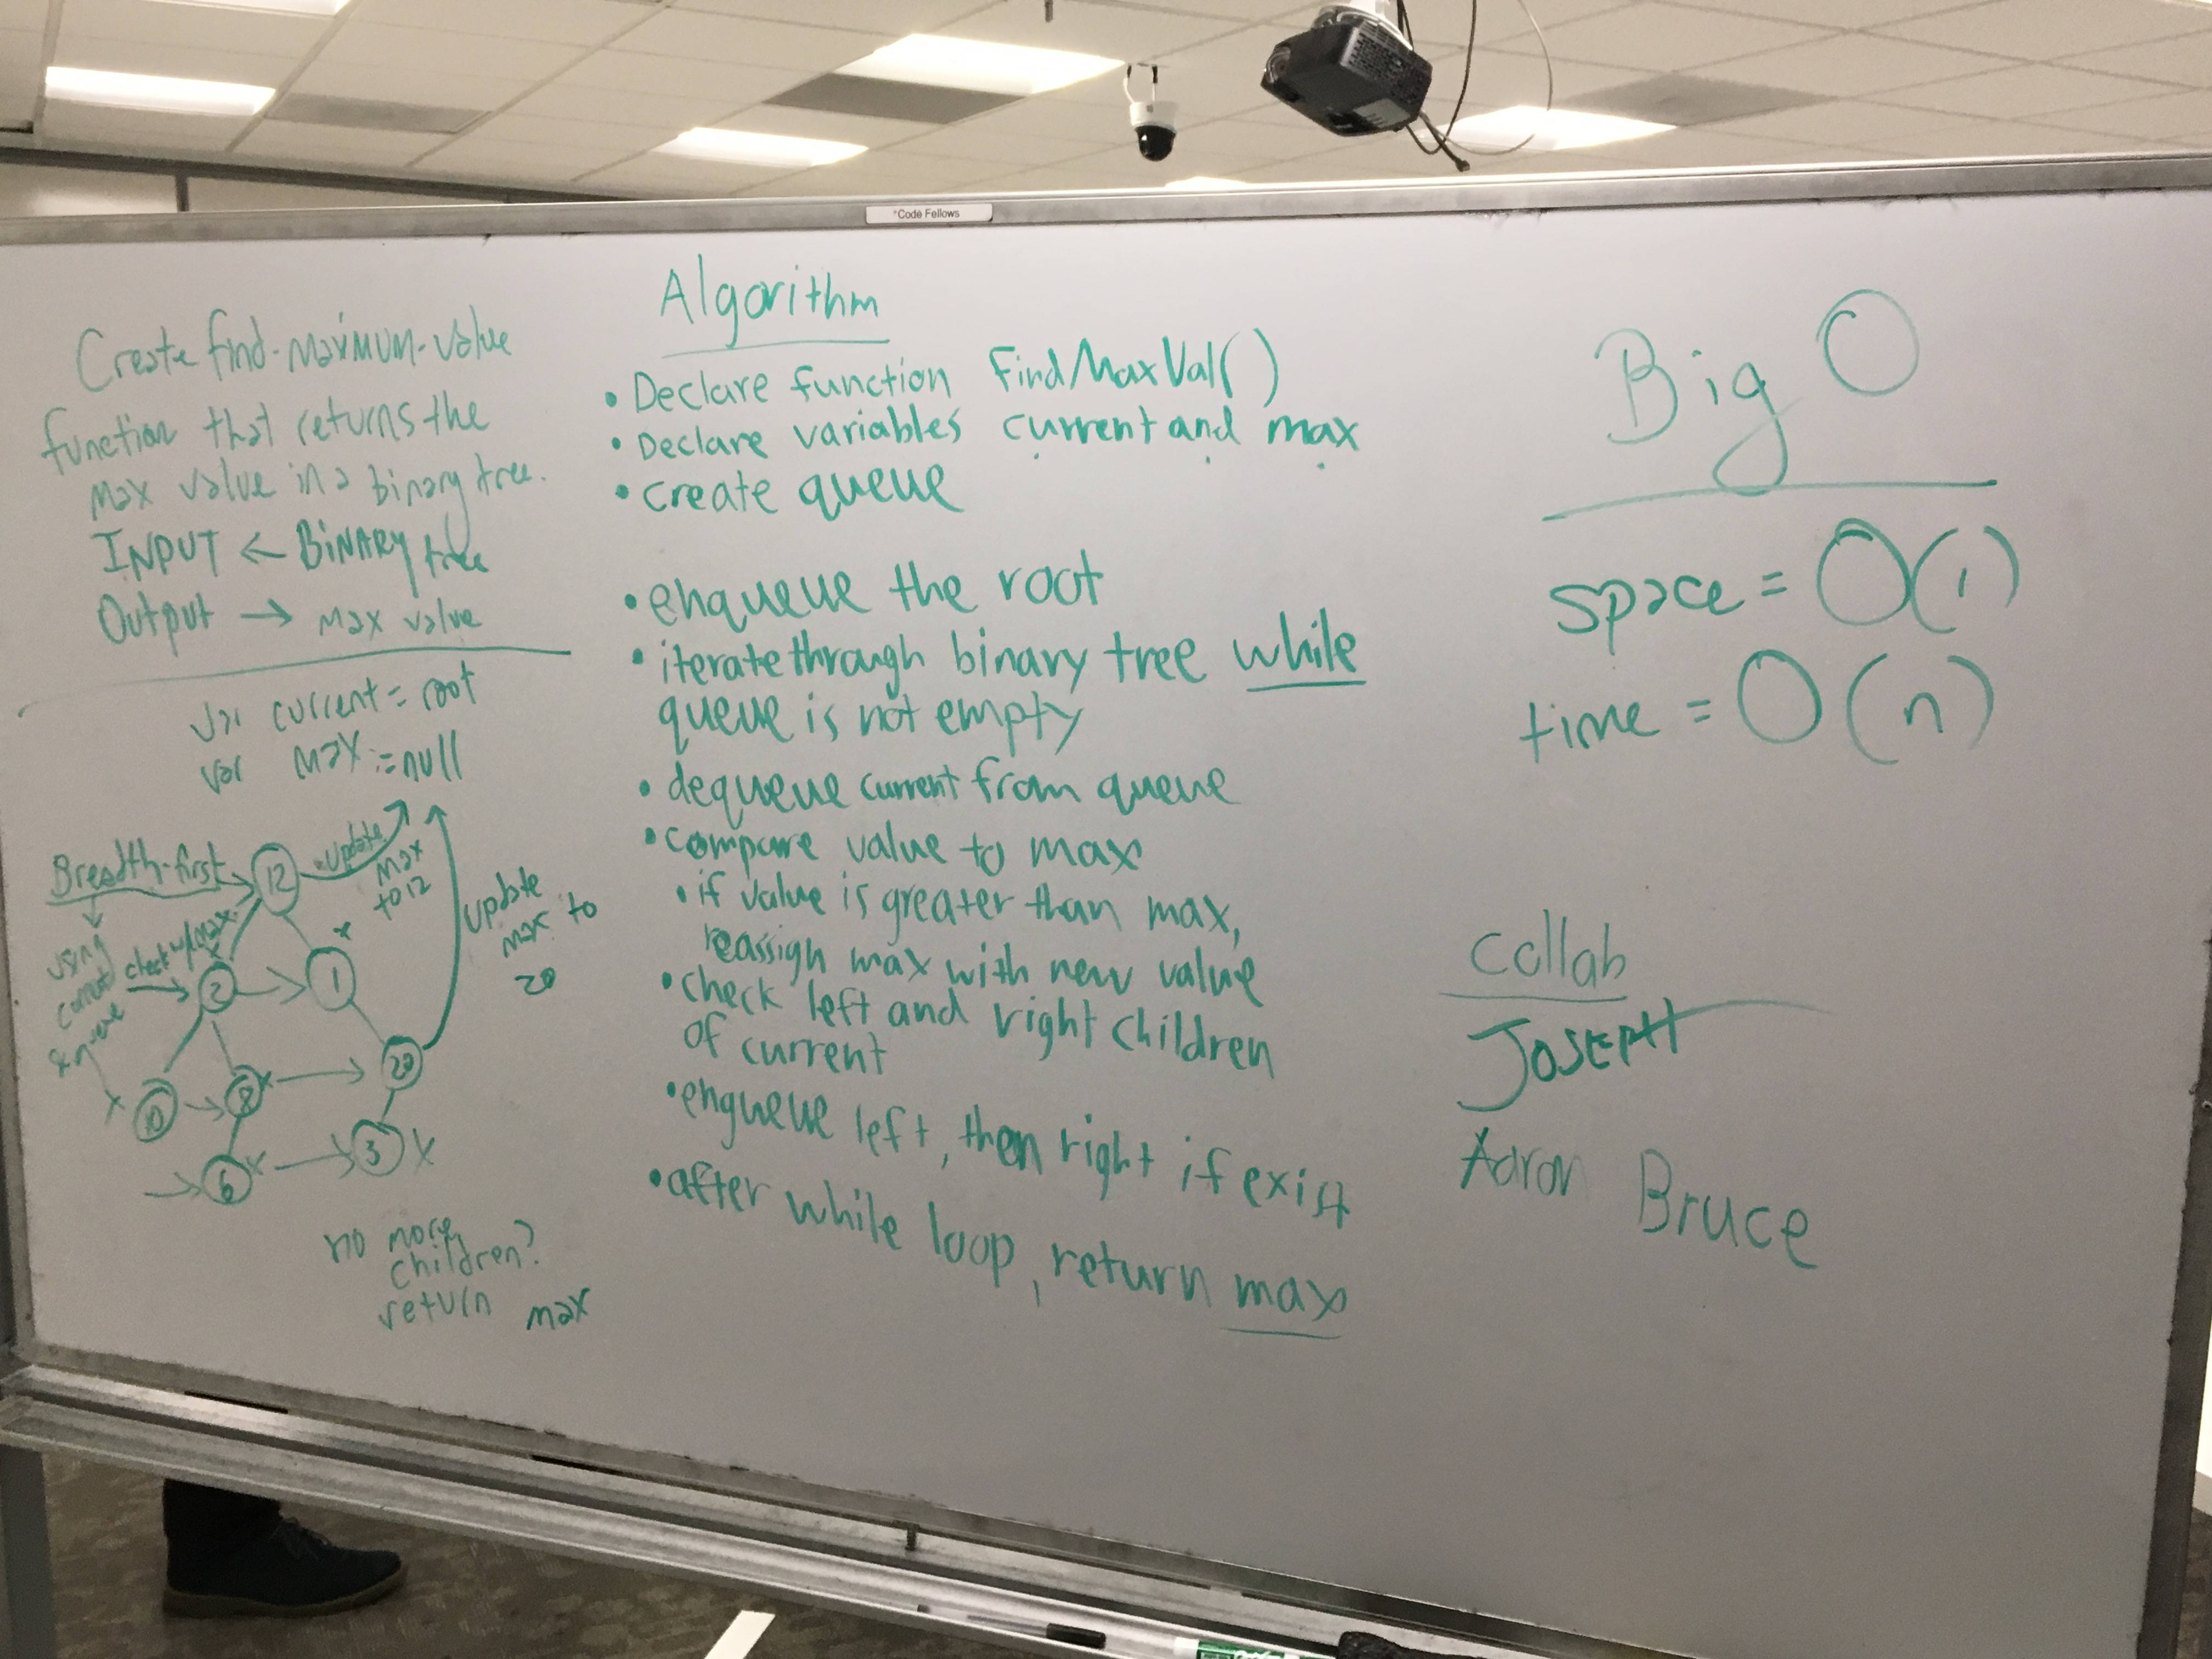 *Code Fellows
Create find-maximum-value
function that returns the
max value in a binary tree.
INPUT ← BINARY tree
Output → max value
var current = root
var max := null
Breadth-first
12
update
max
to 12
update
max to
20
using
current
& queue
check w/ max
x
x
2
1
x
10
8
x
20
6
x
3
x
no more
children?
return max
Algorithm
• Declare function FindMaxVal()
• Declare variables current and max
• create queue
• enqueue the root
• iterate through binary tree while
queue is not empty
• dequeue current from queue
• compare value to max
• if value is greater than max,
reassign max with new value
• check left and right children
of current
• enqueue left, then right if exist
• after while loop, return max
Big O
space = O(1)
time = O(n)
collab
JOSEPH
Aaron Bruce